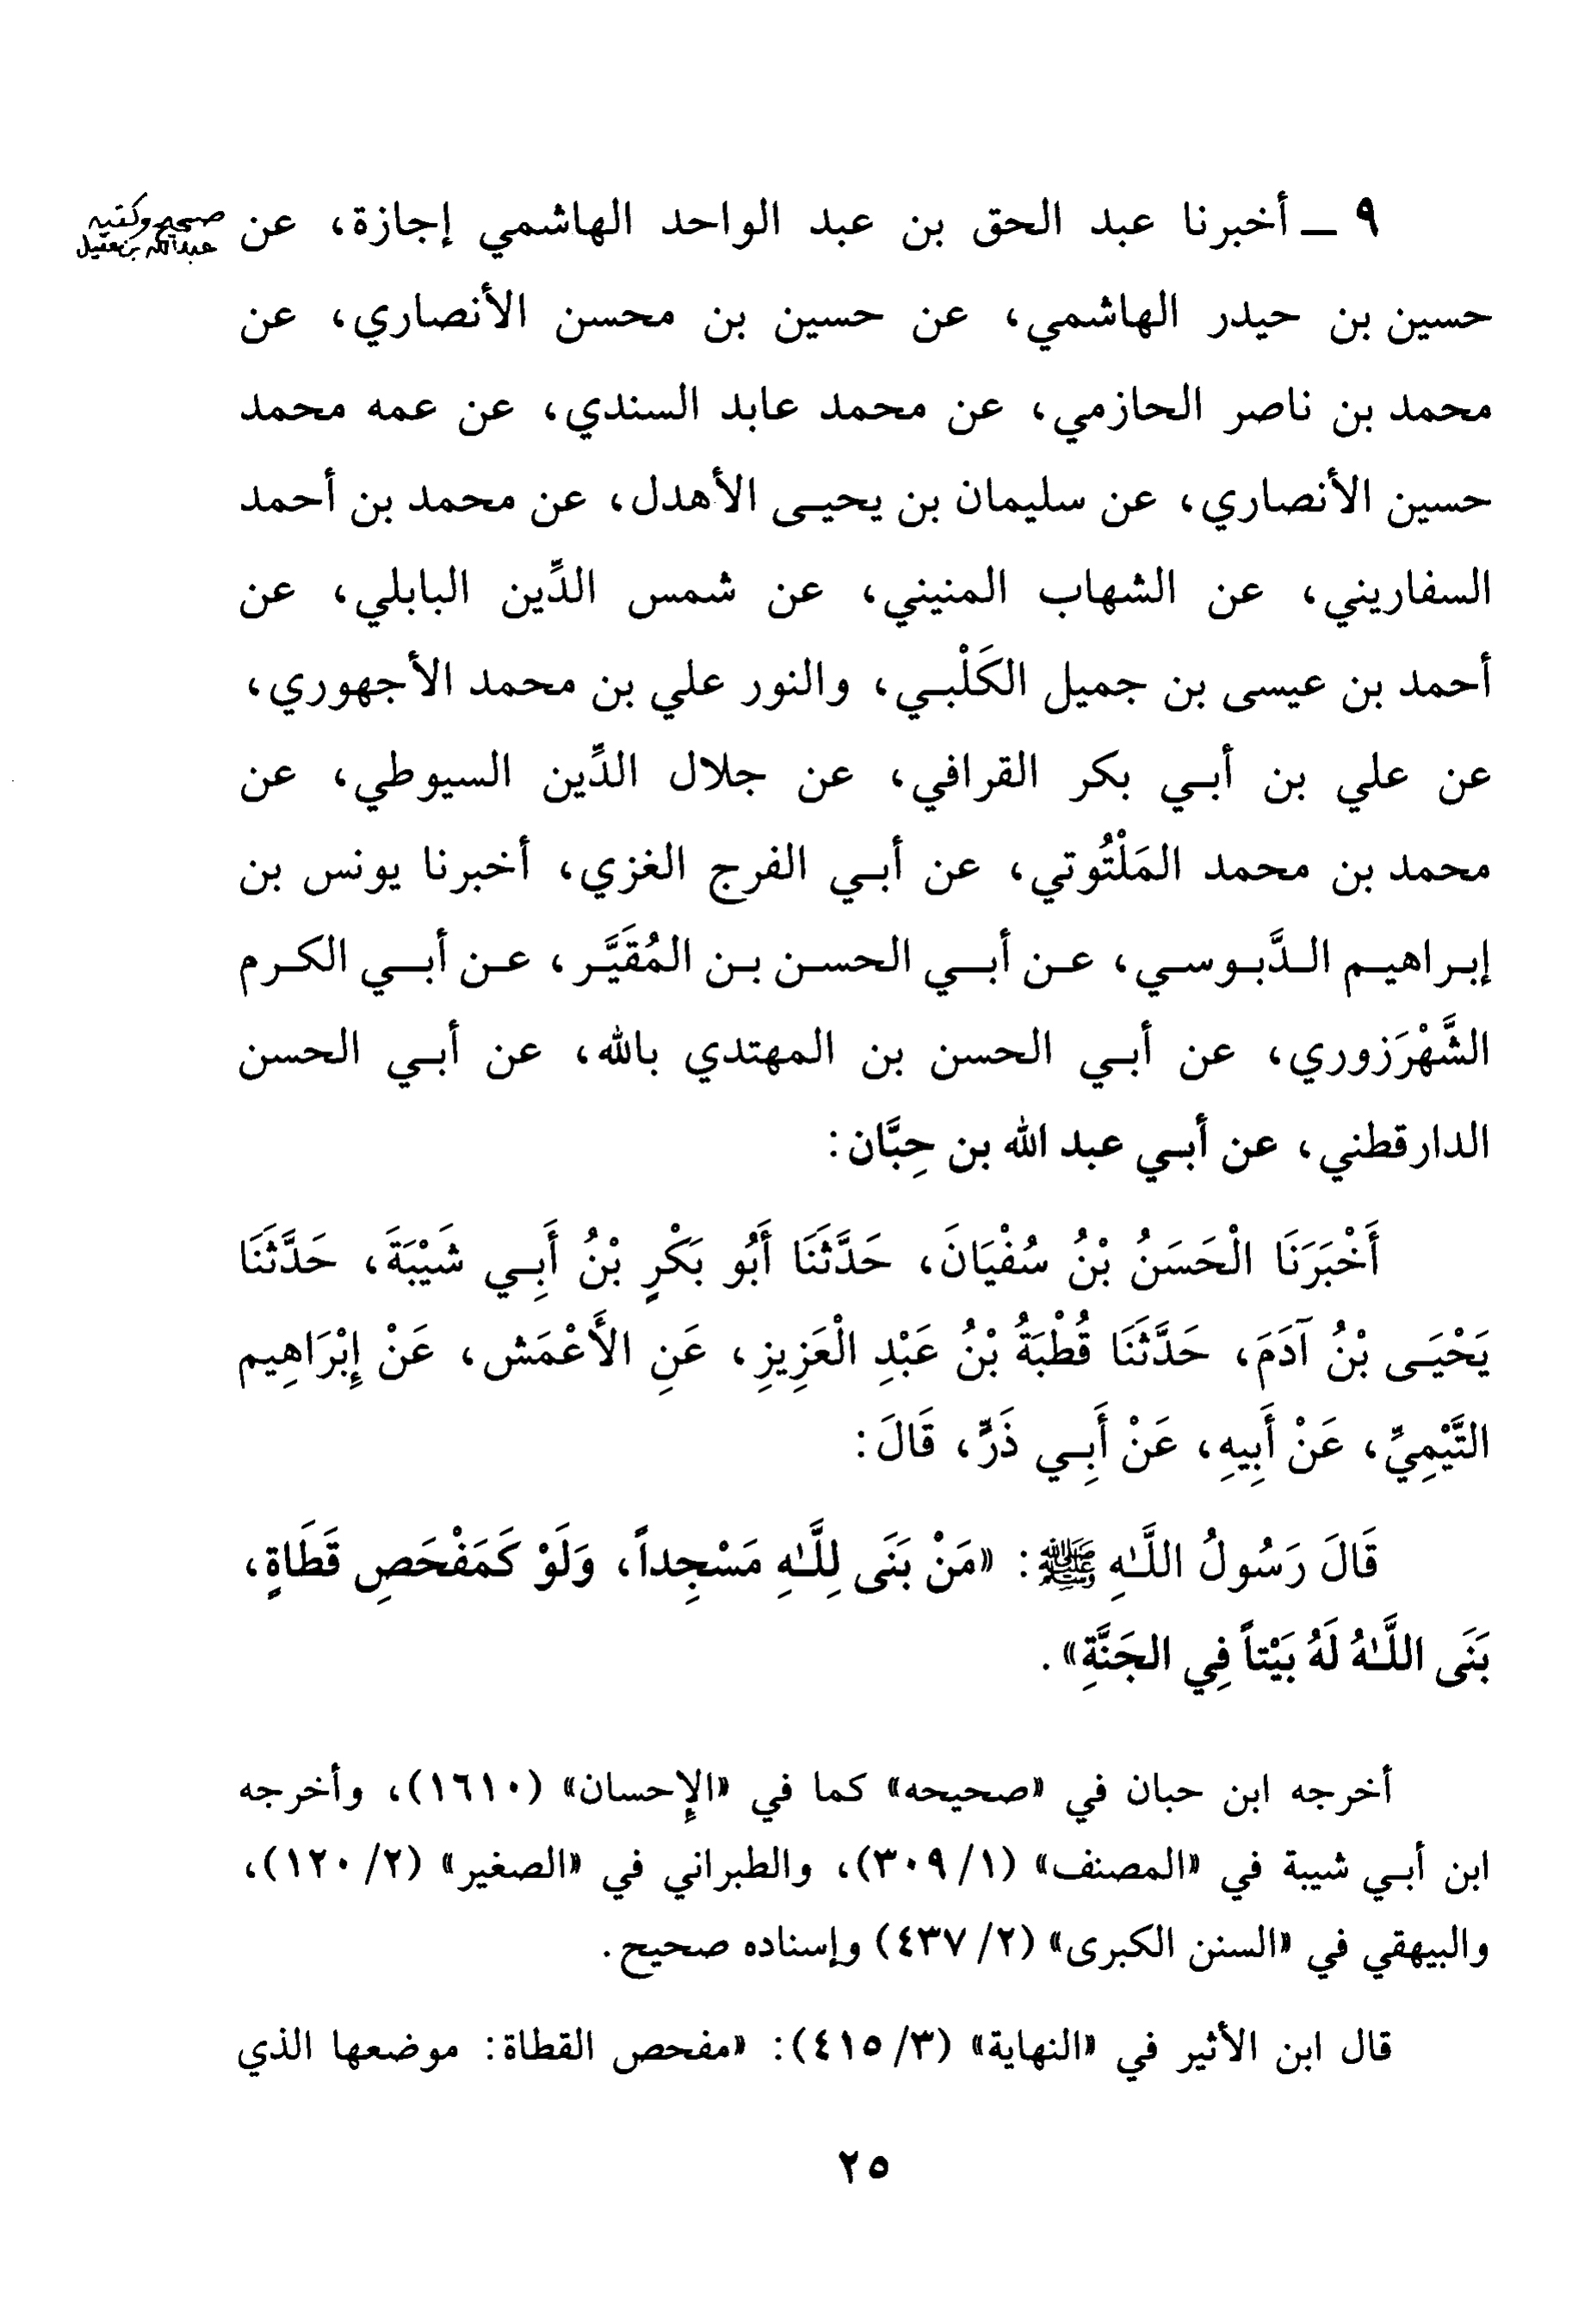 ٩ ــ أخبرنا عبد الحق بن عبد الواحد الهاشمي إجازة، عن
صحيح وكتبه
عبدالله بن عقيل
حسين بن حيدر الهاشمي، عن حسين بن محسن الأنصاري، عن
محمد بن ناصر الحازمي، عن محمد عابد السندي، عن عمه محمد
حسين الأنصاري، عن سليمان بن يحيى الأهدل، عن محمد بن أحمد
السفاريني، عن الشهاب المنيني، عن شمس الدِّين البابلي، عن
أحمد بن عيسى بن جميل الكَلْبي، والنور علي بن محمد الأجهوري،
عن علي بن أبي بكر القرافي، عن جلال الدِّين السيوطي، عن
محمد بن محمد المَلْتُوتي، عن أبي الفرج الغزي، أخبرنا يونس بن
إبراهيم الدَّبوسي، عن أبي الحسن بن المُقَيَّر، عن أبي الكرم
الشَّهْرَزوري، عن أبي الحسن بن المهتدي بالله، عن أبي الحسن
الدارقطني، عن أبي عبد الله بن حِبَّان:
أَخْبَرَنَا الْحَسَنُ بْنُ سُفْيَانَ، حَدَّثَنَا أَبُو بَكْرِ بْنُ أَبِي شَيْبَةَ، حَدَّثَنَا
يَحْيَى بْنُ آدَمَ، حَدَّثَنَا قُطْبَةُ بْنُ عَبْدِ الْعَزِيزِ، عَنِ الأَعْمَش، عَنْ إِبْرَاهِيم
التَّيْمِيِّ، عَنْ أَبِيهِ، عَنْ أَبِي ذَرٍّ، قَالَ:
قَالَ رَسُولُ اللَّهِ ﷺ: «مَنْ بَنَى لِلَّهِ مَسْجِداً، وَلَوْ كَمَفْحَصِ قَطَاةٍ،
بَنَى اللَّهُ لَهُ بَيْتاً فِي الجَنَّةِ».
أخرجه ابن حبان في «صحيحه» كما في «الإحسان» (١٦١٠)، وأخرجه
ابن أبي شيبة في «المصنف» (١/ ٣٠٩)، والطبراني في «الصغير» (٢/ ١٢٠)،
والبيهقي في «السنن الكبرى» (٢/ ٤٣٧) وإسناده صحيح.
قال ابن الأثير في «النهاية» (٣/ ٤١٥): «مفحص القطاة: موضعها الذي
٢٥